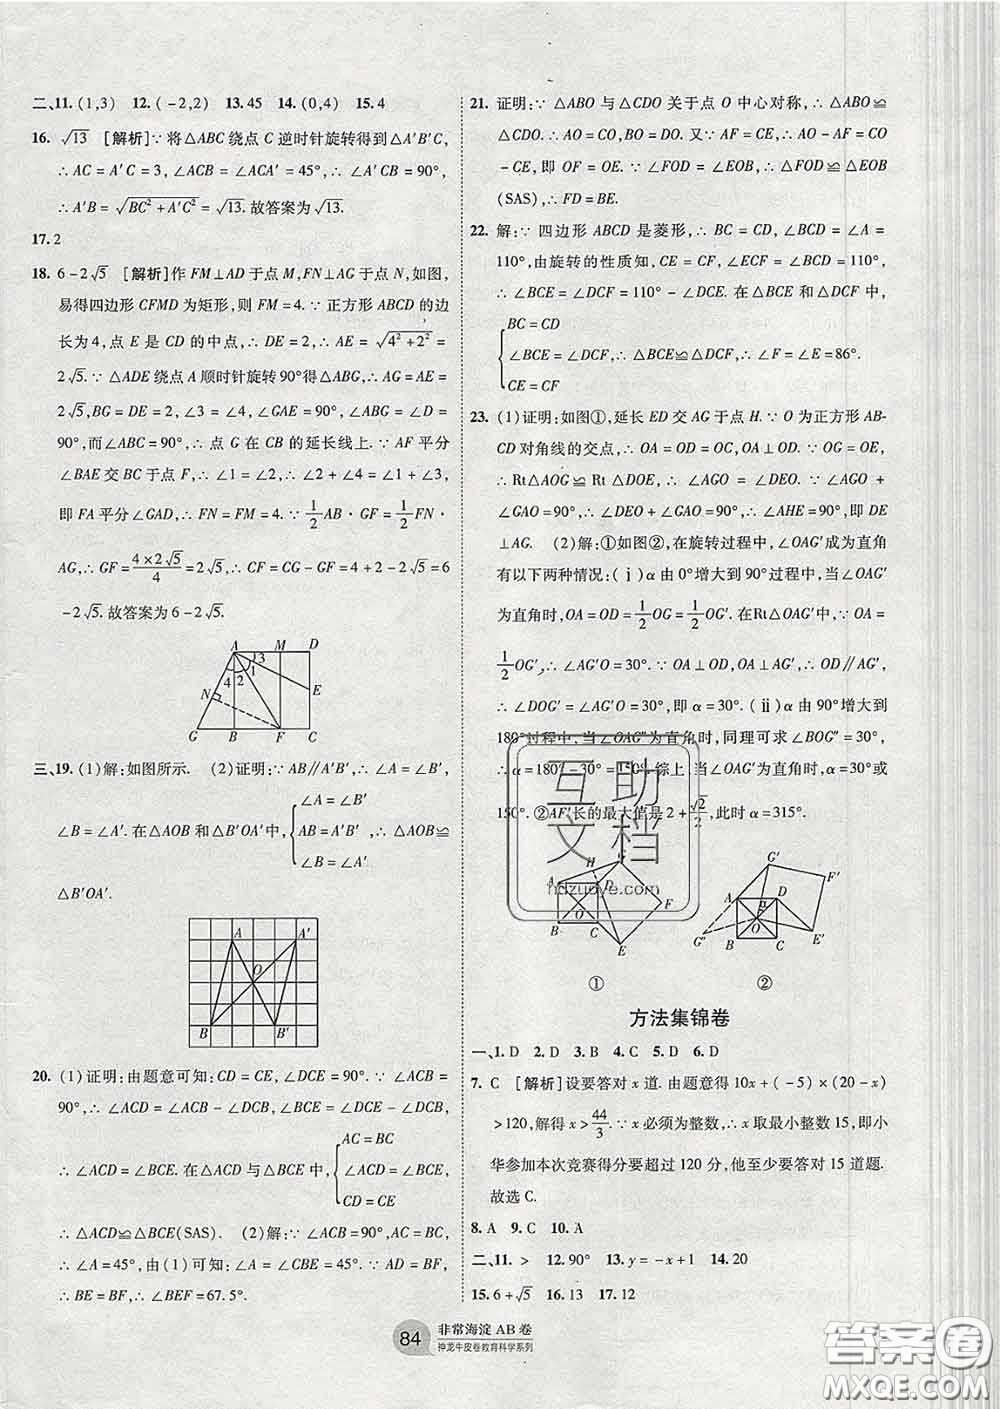 二、11. (1,3)　12. (-2,2)　13. 45　14. (0,4)　15. 4
16. √13　[解析]∵将△ABC绕点C逆时针旋转得到△A′B′C,
∴AC=A′C=3,∠ACB=∠ACA′=45°,∴∠A′CB=90°,
∴A′B=√(BC²+A′C²)=√13.故答案为√13.
17. 2
18. 6-2√5　[解析]作FM⊥AD于点M,FN⊥AG于点N,如图,
易得四边形CFMD为矩形,则FM=4.∵正方形ABCD的边
长为4,点E是CD的中点,∴DE=2,∴AE=√(4²+2²)=
2√5.∵△ADE绕点A顺时针旋转90°得△ABG,∴AG=AE=
2√5,BG=DE=2,∠3=∠4,∠GAE=90°,∠ABG=∠D=
90°,而∠ABC=90°,∴点G在CB的延长线上.∵AF平分
∠BAE交BC于点F,∴∠1=∠2,∴∠2+∠4=∠1+∠3,
即FA平分∠GAD,∴FN=FM=4.∵1/2AB·GF=1/2FN·
AG,∴GF=(4×2√5)/4=2√5,∴CF=CG-GF=4+2-2√5=6
-2√5.故答案为6-2√5.
A M D
1 3 4 2 1
N E
G B F C
三、19. (1)解:如图所示.　(2)证明:∵AB∥A′B′,∴∠A=∠B′,
∠B=∠A′.在△AOB和△B′OA′中,{∠A=∠B′ AB=A′B′ ∠B=∠A′,∴△AOB≌
△B′OA′.
A A′
O
B B′
20. (1)证明:由题意可知:CD=CE,∠DCE=90°.∵∠ACB=
90°,∴∠ACD=∠ACB-∠DCB,∠BCE=∠DCE-∠DCB,
∴∠ACD=∠BCE.在△ACD与△BCE中,{AC=BC ∠ACD=∠BCE, CD=CE
∴△ACD≌△BCE(SAS).　(2)解:∵∠ACB=90°,AC=BC,
∴∠A=45°,由(1)可知:∠A=∠CBE=45°.∵AD=BF,
∴BE=BF,∴∠BEF=67.5°.
21. 证明:∵△ABO与△CDO关于点O中心对称,∴△ABO≌
△CDO.∴AO=CO,BO=DO.又∵AF=CE,∴AO-AF=CO
-CE,即OF=OE.∵∠FOD=∠EOB,∴△FOD≌△EOB
(SAS),∴FD=BE.
22. 解:∵四边形ABCD是菱形,∴BC=CD,∠BCD=∠A=
110°,由旋转的性质知,CE=CF,∠ECF=∠BCD=110°,
∴∠BCE=∠DCF=110°-∠DCE.在△BCE和△DCF中,
{BC=CD
∠BCE=∠DCF,∴△BCE≌△DCF,∴∠F=∠E=86°.
CE=CF
23. (1)证明:如图①,延长ED交AG于点H.∵O为正方形AB-
CD对角线的交点,∴OA=OD=OC,OA⊥OD.∵OG=OE,
∴Rt△AOG≌Rt△DOE,∴∠AGO=∠DEO.∵∠AGO+
∠GAO=90°,∴∠DEO+∠GAO=90°,∴∠AHE=90°,即DE
⊥AG.　(2)解:①如图②,在旋转过程中,∠OAG′成为直角
有以下两种情况:(ⅰ)α由0°增大到90°过程中,当∠OAG′
为直角时,OA=OD=1/2OG=1/2OG′.在Rt△OAG′中,∵OA=
1/2OG′,∴∠AG′O=30°.∵OA⊥OD,OA⊥AG′,∴OD∥AG′,
∴∠DOG′=∠AG′O=30°,即α=30°.(ⅱ)α由90°增大到
180°过程中,当∠OAG″为直角时,同理可求∠BOG″=30°,
∴α=180°-30°=150°.综上,当∠OAG′为直角时,α=30°或
150°.②AF′长的最大值是2+√2/2,此时α=315°.
H A D O F B C E
①
G′ F′ A D α O G″ B C E′
②
互助文档
hdzuoye.com
方法集锦卷
一、1. D　2. D　3. B　4. C　5. D　6. D
7. C　[解析]设要答对x道.由题意得10x+(-5)×(20-x)
>120,解得x>44/3.∵x必须为整数,∴x取最小整数15,即小
华参加本次竞赛得分要超过120分,他至少要答对15道题.
故选C.
8. A　9. C　10. A
二、11. >　12. 90°　13. y=-x+1　14. 20
15. 6+√5　16. 13　17. 12
84
非常海淀AB卷
神龙牛皮卷教育科学系列
答案圈
MXQE.COM